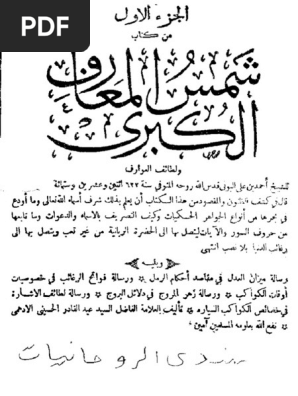 PDF
الجزء الاول
من كتاب
شمس المعارف
الكبرى
ولطائف العوارف
للشيخ أحمد بن على البونى قدس الله روحه المتوفى سنة ٦٢٢ اثنين وعشرين وستمائة
قال فى كشف الظنون والمقصود من هذا الكتاب أن يعلم بذلك شرف أسماء الله تعالى وما أودع
فى بحرها من أنواع الجواهر الحكميات وكيف التصريف بالاسماء والدعوات وما تابعها
من حروف السور والآيات ليتصل بها الى الحضرة الربانية من غير تعب ويتصل بها الى
رغائب الدنيا بلا نصب انتهى
ويليه
رسالة ميزان العدل فى مقاصد أحكام الرمل ورسالة فواتح الرغائب فى خصوصيات
أوقات الكواكب ورسالة زهر المروج فى دلائل البروج ورسالة لطائف الاشارة
فى خصائص الكواكب السياره تأليف العلامة الفاضل السيد عبد القادر الحسينى الادهمى
نفع الله بعلومه المسلمين آمين
الروحانيات